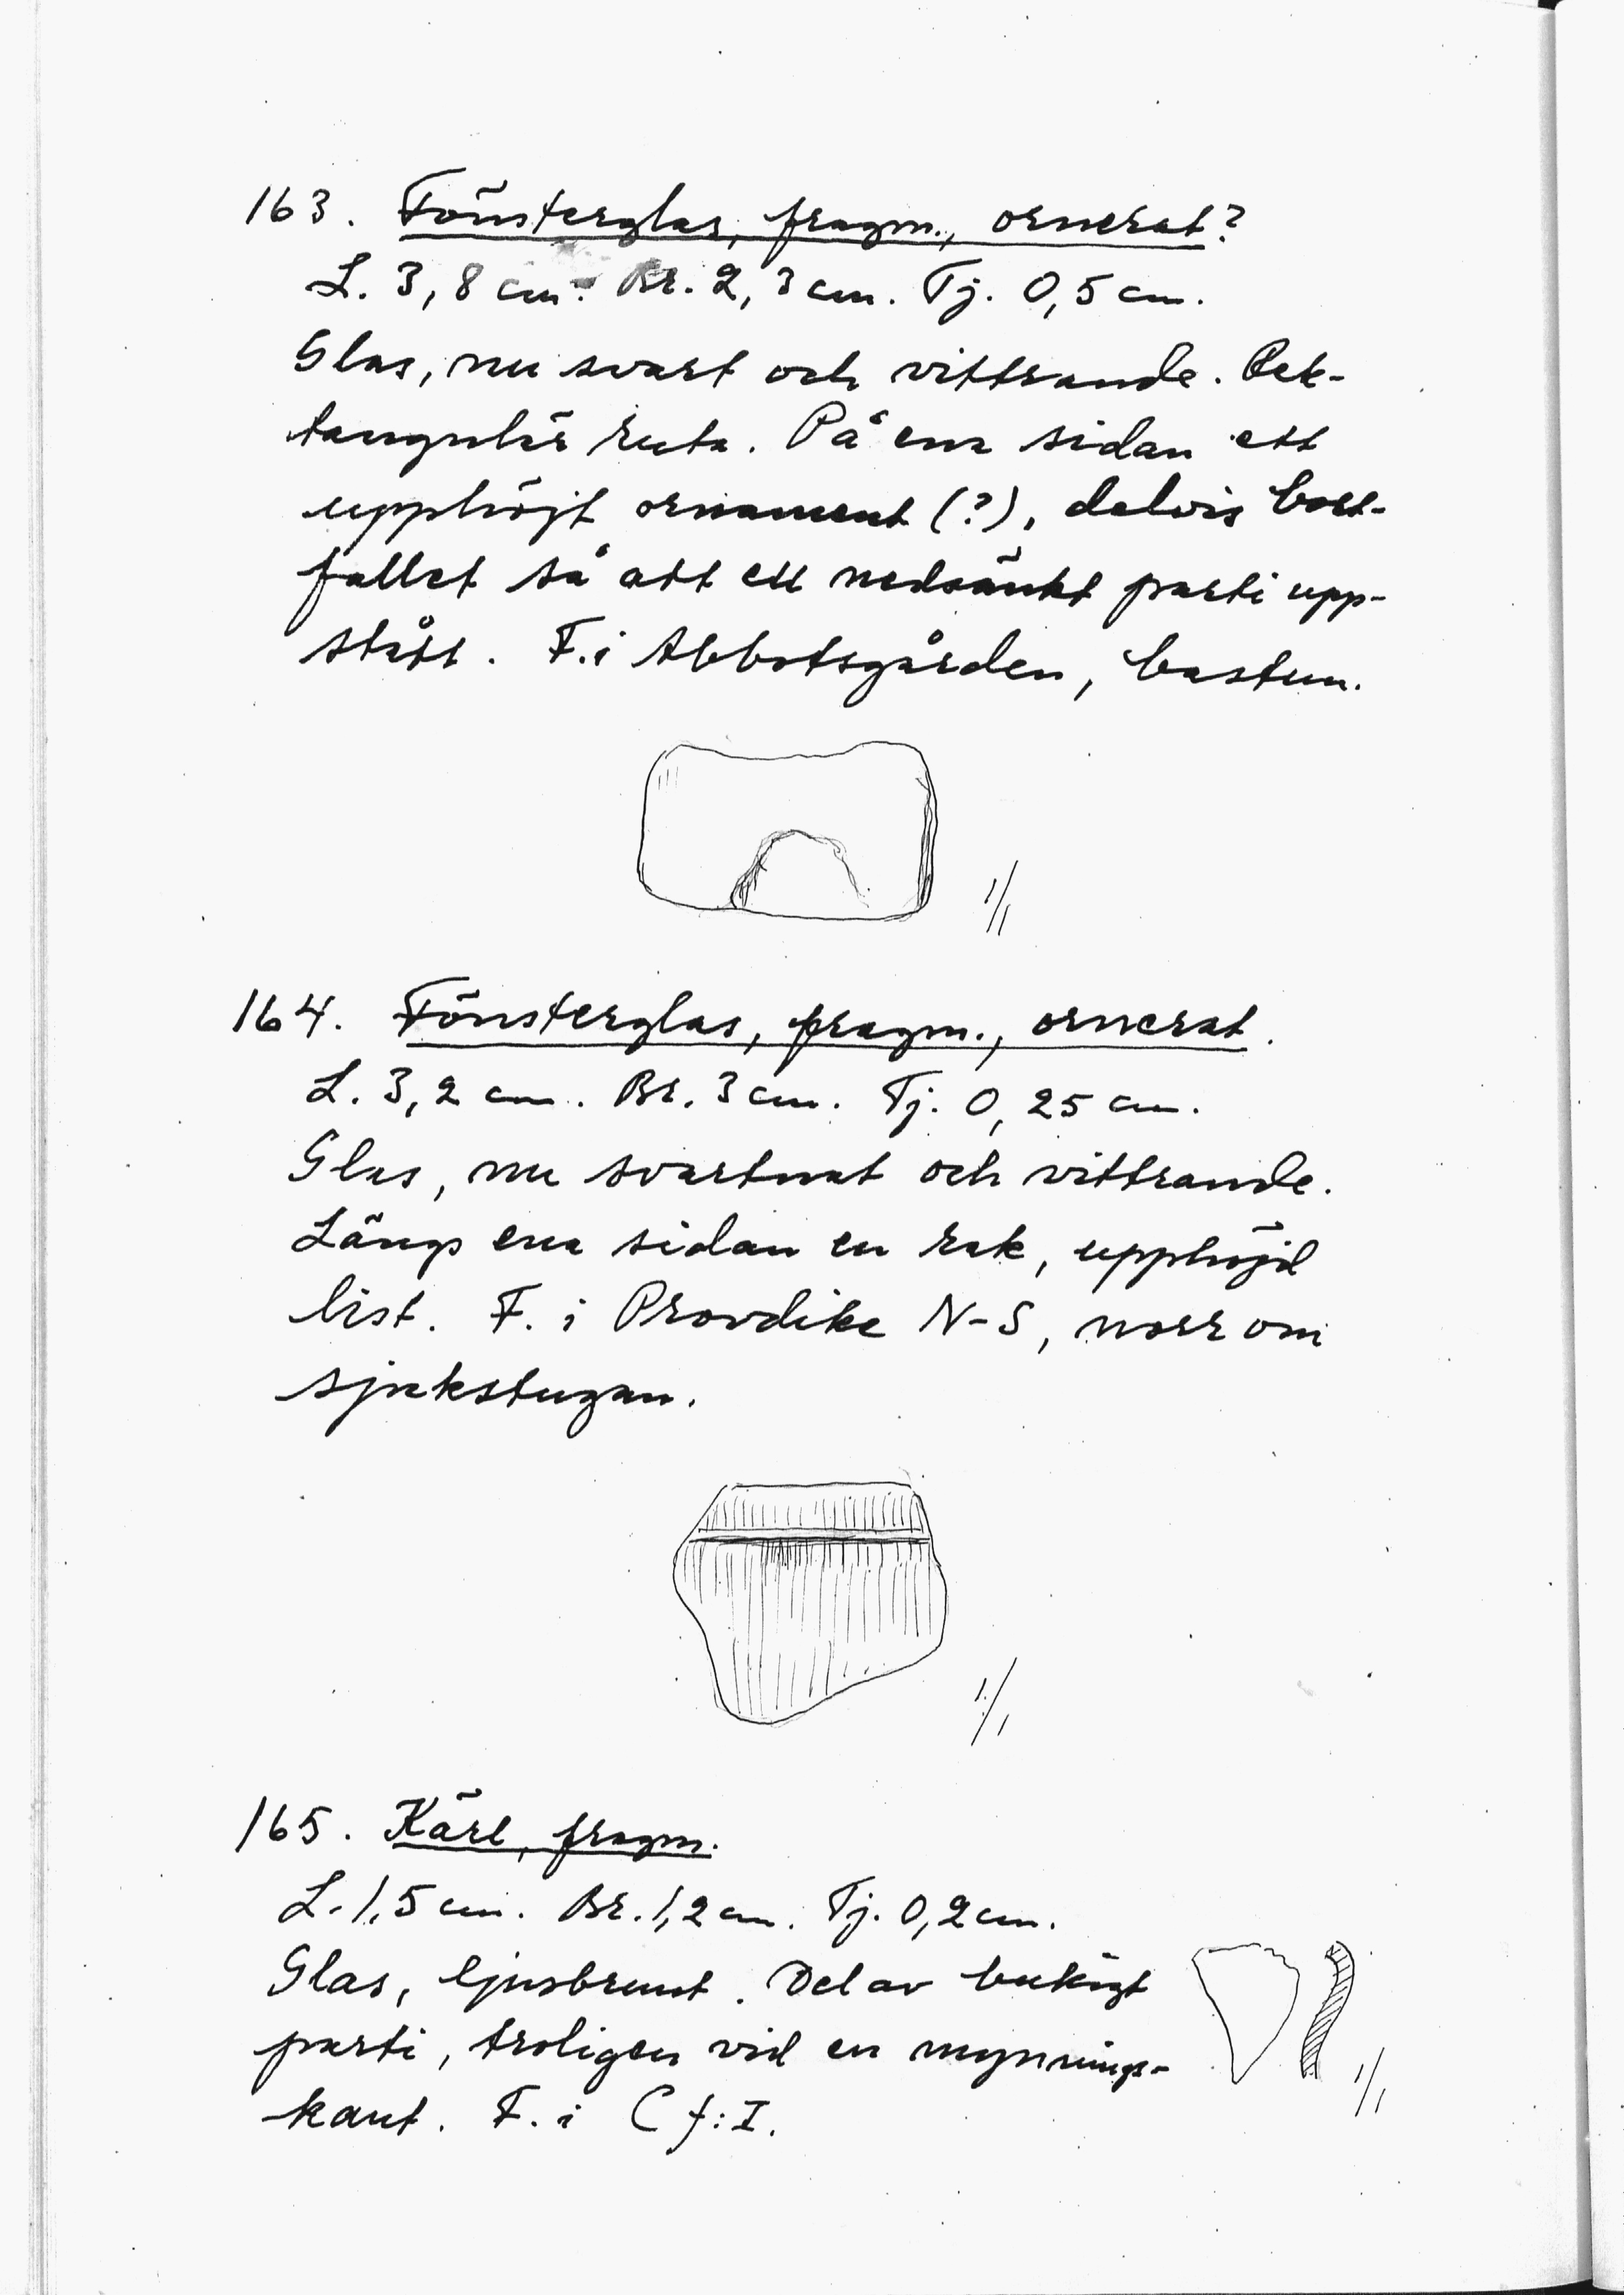 163. Fönsterglas, fragm., ornerat?
L. 3,8 cm. Br. 2,3 cm. Tj. 0,5 cm.
Glas, nu svart och vittrande. Rek-
tangulär ruta. På ena sidan ett
upphöjt ornament (?), delvis bort-
fallet så att ett nedsänkt parti upp-
stått. F. i Abbotsgården, bastun.
1/1
164. Fönsterglas, fragm., ornerat.
L. 3,2 cm. Br. 3 cm. Tj. 0,25 cm.
Glas, nu svartnat och vittrande.
Längs ena sidan en rak, upphöjd
list. F. i Provdike N-S, norr om
sjukstugan.
1/1
165. Kärl, fragm.
L. 1,5 cm. Br. 1,2 cm. Tj. 0,2 cm.
Glas, ljusbrunt. Del av bukigt
parti, troligen vid en mynnings-
kant. F. i C f:I.
1/1